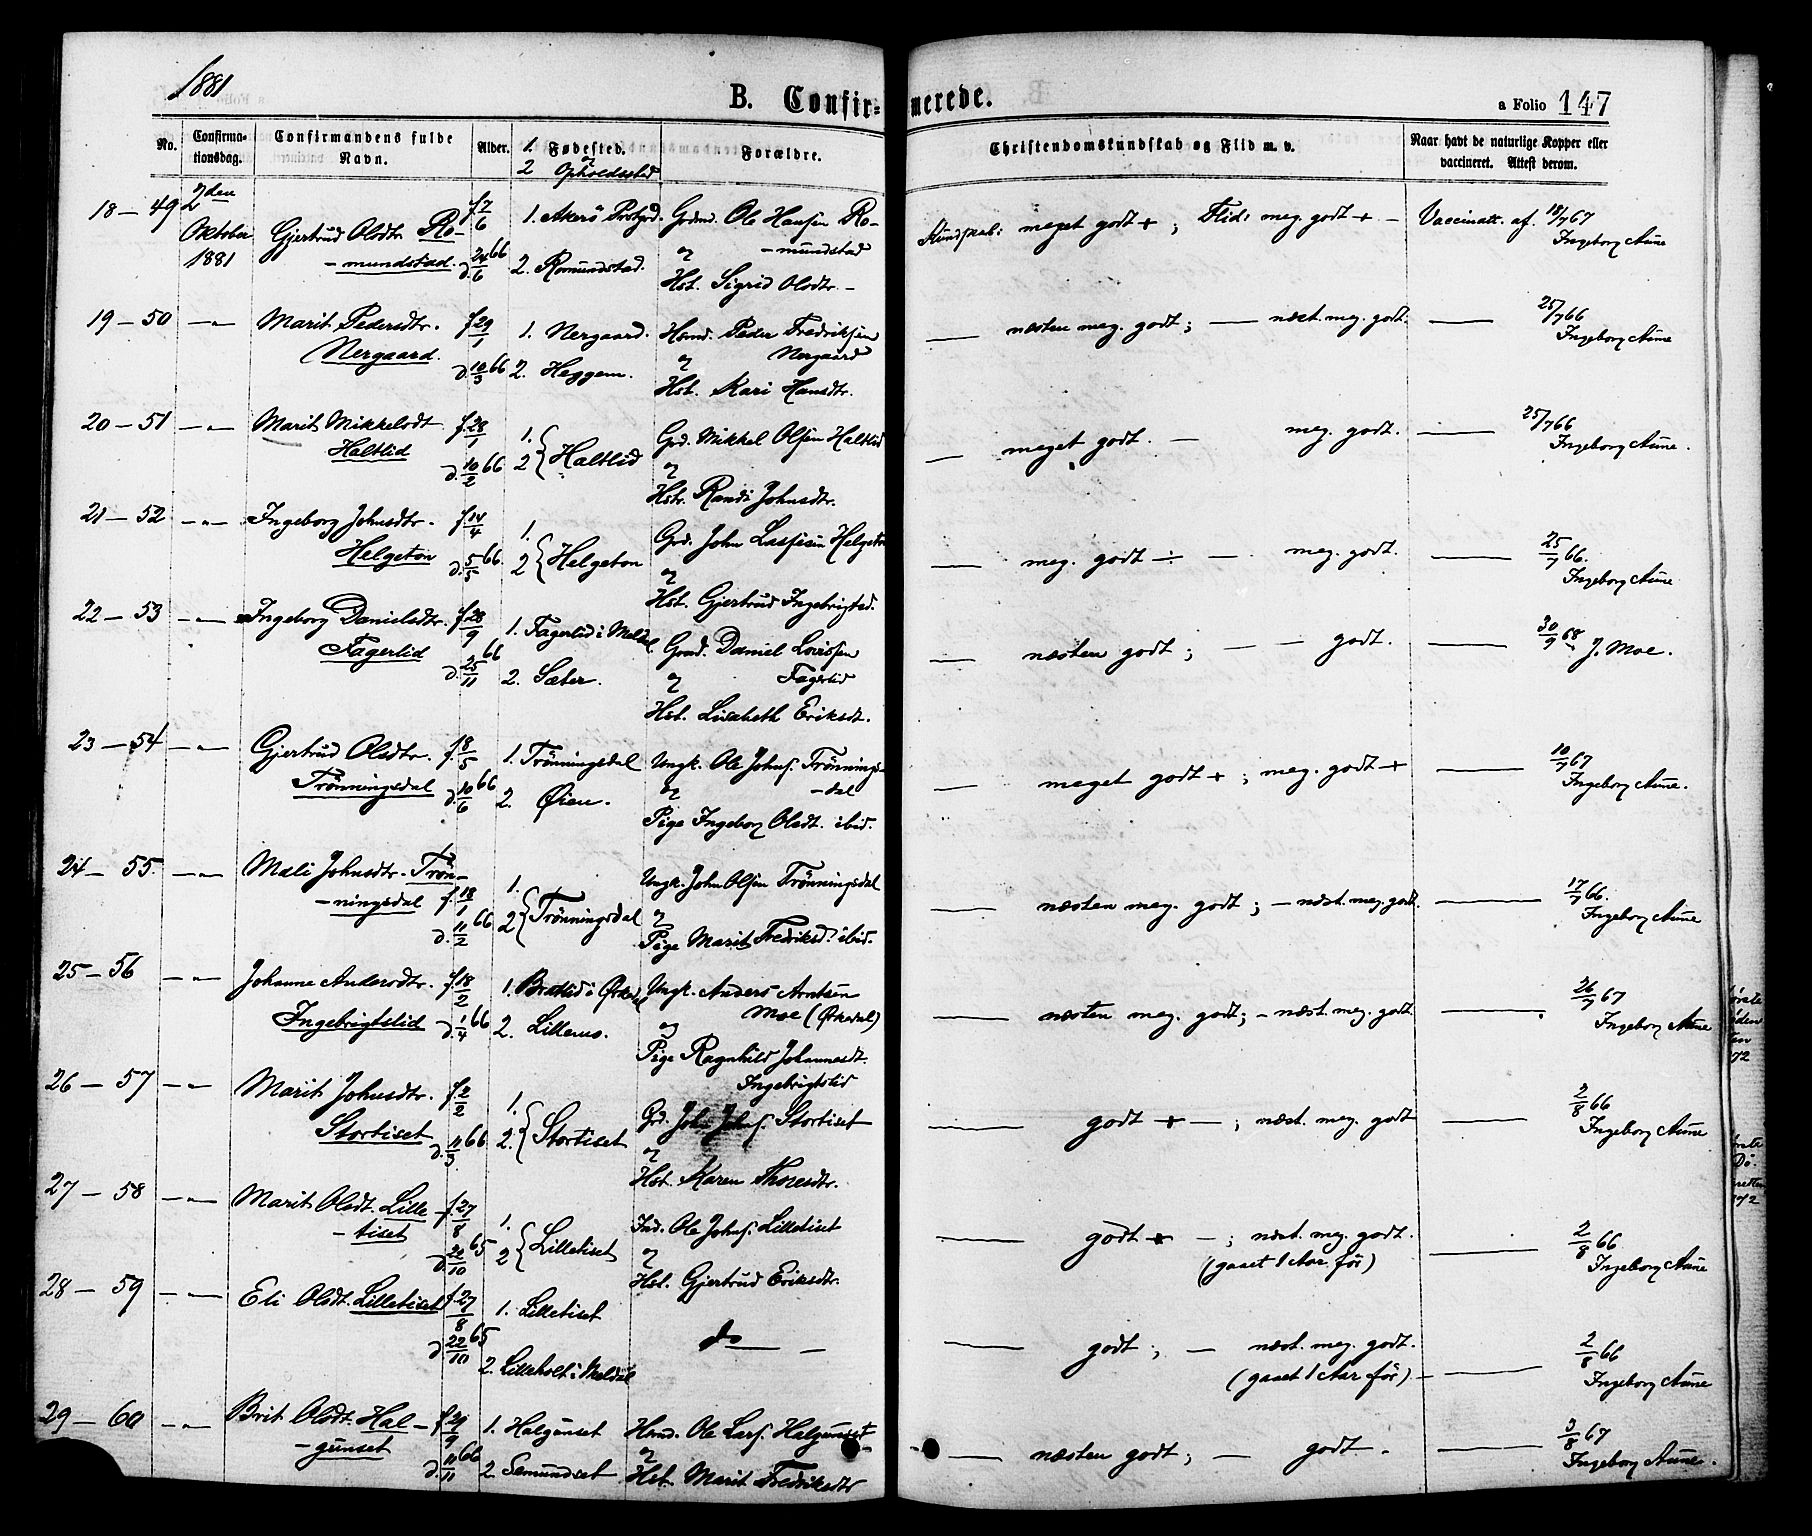 1881
B. Confirmerede.
a Folio 147
No. Confirmationsdag. Confirmandens fulde Navn. Alder. 1. Fødested. og 2 Opholdssted Forældre. Christendomskundskab og Flid m. v. Naar havt de naturlige Kopper eller vaccineret. Attest derom.
18 - 49 2den Gjertrud Olsdtr. Ro- f. 7/6 1. Akerö Prstgrd. Grdmd. Ole Hansen Ro- Kundskab: meget godt + ; Flid: meg. godt + - Vaccinatt. af. 18/7 67
Oktober - mundstad. d. 24/6 66 2. Romundstad. og - mundstad Ingeborg Aune
1881 Hst. Sigrid Olsdtr. -
19 - 50 -"- Marit Pedersdtr. f. 29/1 1. Nergaard. Hsmd. Peder Fredriksen — næsten meg. godt; — næst. meg. godt. — 25/7 66
Nergaard. d. 10/3 66 2. Heggem. og Nergaard Ingeborg Aune
Hst. Kari Hansdtr.
20 - 51 -"- Marit Mikkelsdt. f. 28/1 1. Grd. Mikkel Olsen Haltlid — meget godt. — meg. godt. — 25/7 66
Haltlid d. 10/2 66 2 { Haltlid og Ingeborg Aune.
Hstr. Randi Johnsdtr.
21 - 52 -"- Ingeborg Johnsdtr. f. 14/4 1. Grd. John Larssen Helgeton — meg. godt ÷ — meg. godt. — 25/7 66.
Helgeton d. 5/5 66. 2 { Helgeton og Ingeborg Aune
Hst. Gjertrud Ingebrigtsd.
22 - 53 -"- Ingeborg Danielsdtr. f. 28/9 1. Fagerlid i Meldal Grmd. Daniel — næsten godt; — — godt. — 30/9 68
Fagerlid d. 25/11 66 2. Sæter. og Fagerlid J. Moe.
Hst. Lisabeth Eriksdt.
23 - 54 -"- Gjertrud Olsdtr. f. 8/5 1. Trönningsdal Ungk. Ole Johns. Trönnings- — meget godt + ; meg. godt + — 10/7 67
Trönningsdal d. 10/6 66 2. Øien. og - dal Ingeborg Aune.
Pige Ingeborg Olsdt. ibid.
24 - 55. -"- Mali Johnsdtr. Trön- 1. Ungk. John Olsen Trönningsdal — næsten meg. godt; - næst. meg. godt. — 17/7 66.
- ningsdal f. 18/1 d. 11/2 66 2 { Trönningsdal og Ingeborg Aune
Pige Marit Fredriksd. ibid.
25 - 56 -"- Johanne Andersdtr. f. 18/2 1. Bratlid i Ørkedl Ungk. Anders Arntsen — næsten meg. godt; - næst. meg. godt. — 26/7 67
Ingebrigtslid d. 1/4 66 2. Lillemo. Moe (Ørkedal) Ingeborg Aune
og
Pige Ragnhild Johannesdt.
Ingebrigtslid
26 - 57 -"- Marit Johnsdtr. f. 2/2 1. Grd. John Johns. Stortiset — godt + — ; næst. meg. godt — 2/8 66
Stortiset d. 11/3 66 2. { Stortiset og Ingeborg Aune
Hst. Karen Thoresdtr.
27 - 58 -"- Marit Olsdt. Lille- f. 27/8 1. Ind. Ole Johns. Lilletiset — godt + — ; næst. meg. godt. — 2/8 66
- tiset d. 22/10 65 2 { Lilletiset og (gaaet 1 Aar før) Ingeborg Aune
Hst. Gjertrud Eriksdtr.
28 - 59 -"- Eli Olsdt. Lilletiset f. 27/8 1. Lilletiset do — — godt ; — næst. meg. godt. — 2/8 66
d. 22/10 65 2. Lilleholt i Meldal (gaaet 1 Aar før) - Ingeborg Aune
29 - 60 -"- Brit Olsdt. Hal- f. 29/9 1. Halgunset Hsmd. Ole Lars. Halgunset — næsten godt; — godt. — 3/8 67
- gunset d. 11/11 66 2. Semundset og Ingeborg Aune.
Hst. Marit Fredriksdtr